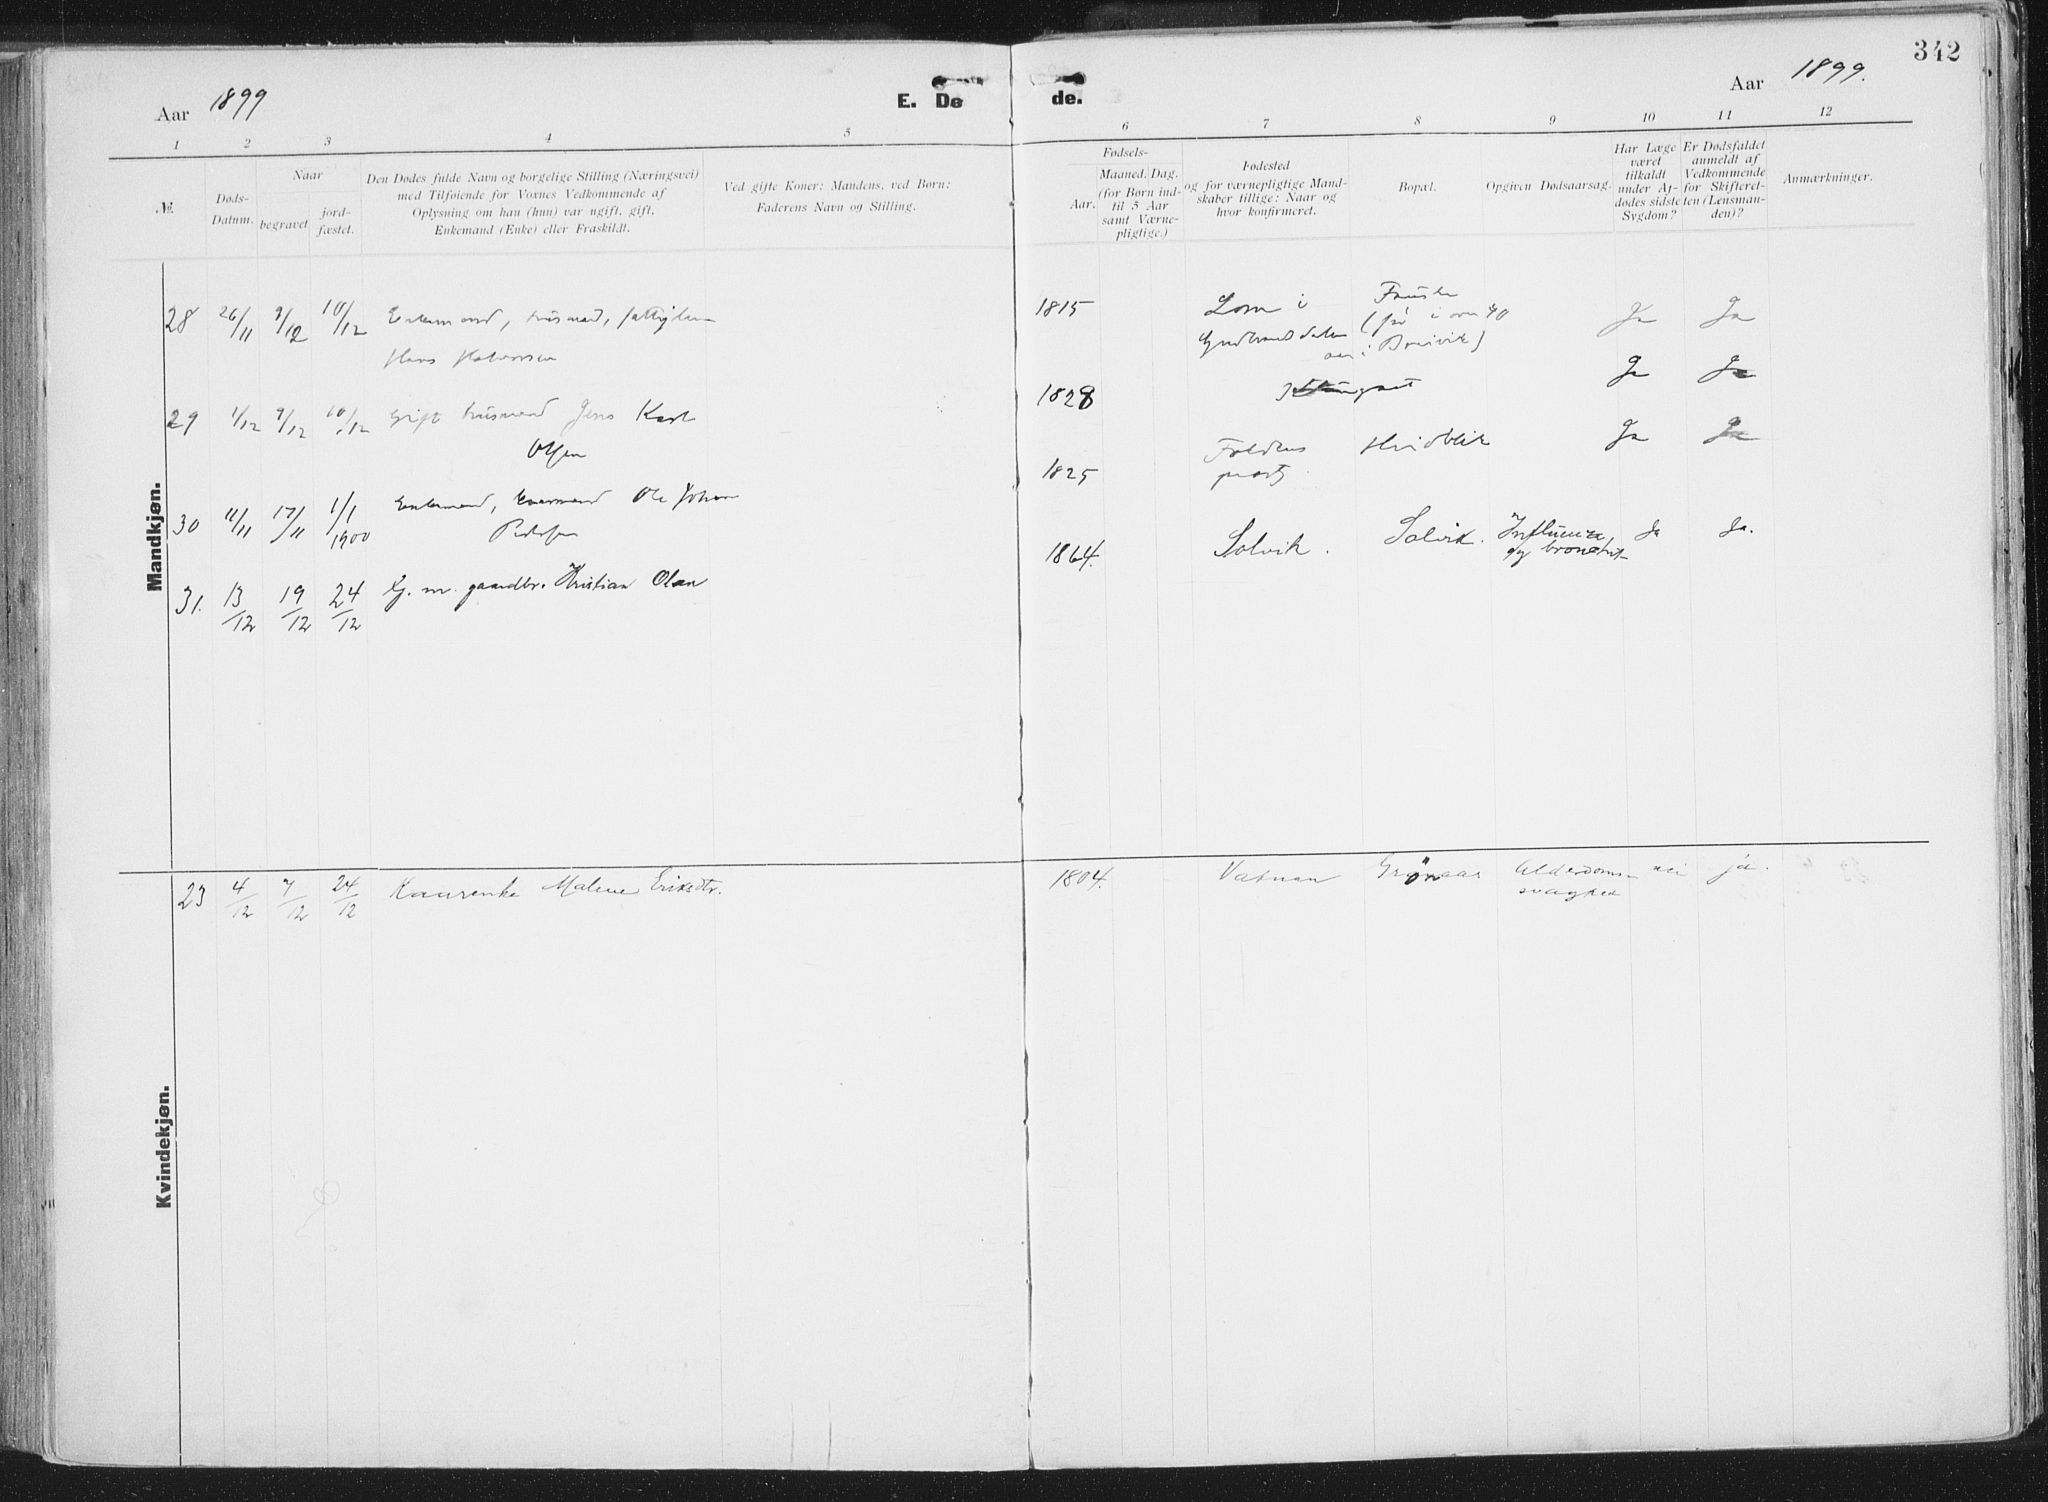 342
Aar 1899
E. Dø de.
Aar 1899.
1 2 3 4 5 6 7 8 9 10 11 12
№.
Døds-
Datum.
Naar
begravet
jord-
fæstet.
Den Dødes fulde Navn og borgelige Stilling (Næringsvei)
med Tilføiende for Voxnes Vedkommende af
Oplysning om han (hun) var ugift, gift,
Enkemand (Enke) eller Fraskildt.
Ved gifte Koner: Mandens, ved Børn:
Faderens Navn og Stilling.
Fødsels-
Aar.
Maaned. Dag.
(for Børn ind-
til 5 Aar
samt Værne-
pligtige.)
Fødested
og for værnepligtige Mand-
skaber tillige: Naar og
hvor konfirmeret.
Bopæl.
Opgiven Dødsaarsag.
Har Læge
været
tilkaldt
under Af-
dødes sidste
Sygdom?
Er Dødsfaldet
anmeldt af
Vedkommende
for Skifteret-
ten (Lensman-
den)?
Anmærkninger.
Mandkjøn.
28 26/11 9/12 10/12 Enkemand, husmand,
Hans Halvorsen
1815 Lom i
Gudbrandsdalen
Fauske
Ja Ja
29 1/12 9/12 10/12 Gift husmand Jens Karl
Olsen
1828
Ja Ja
30 11/11 17/11 1/1 1900 Enkemand, Ole Johan
Pedersen
1825 Foldens
Hvidblik Ja Ja
31. 13/12 19/12 24/12 Gj. m. gaardbr. Kristian Olsen
1864. Solvik. Solvik. Influenza
og bronchit Ja Ja.
Kvindekjøn.
23 4/12 7/12 24/12 Kaurenke Malene Eriksdtr.
1804. Vatnan Grønaas Alderdoms-
svaghed nei ja.